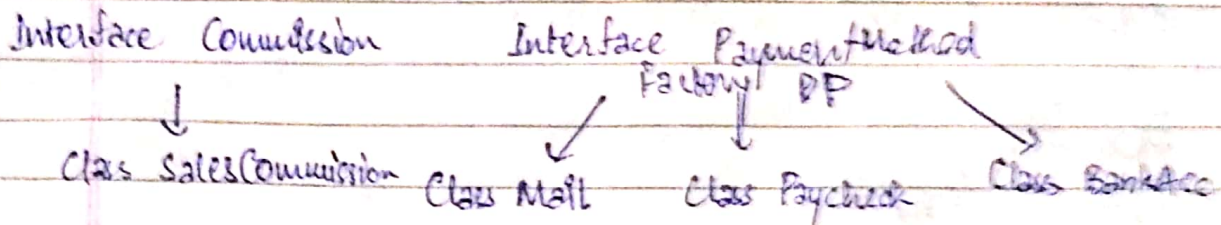 Interface Commission Interface PaymentMethod
Factory DP
Class SalesCommission Class Mail Class Paycheck Class BankAcc